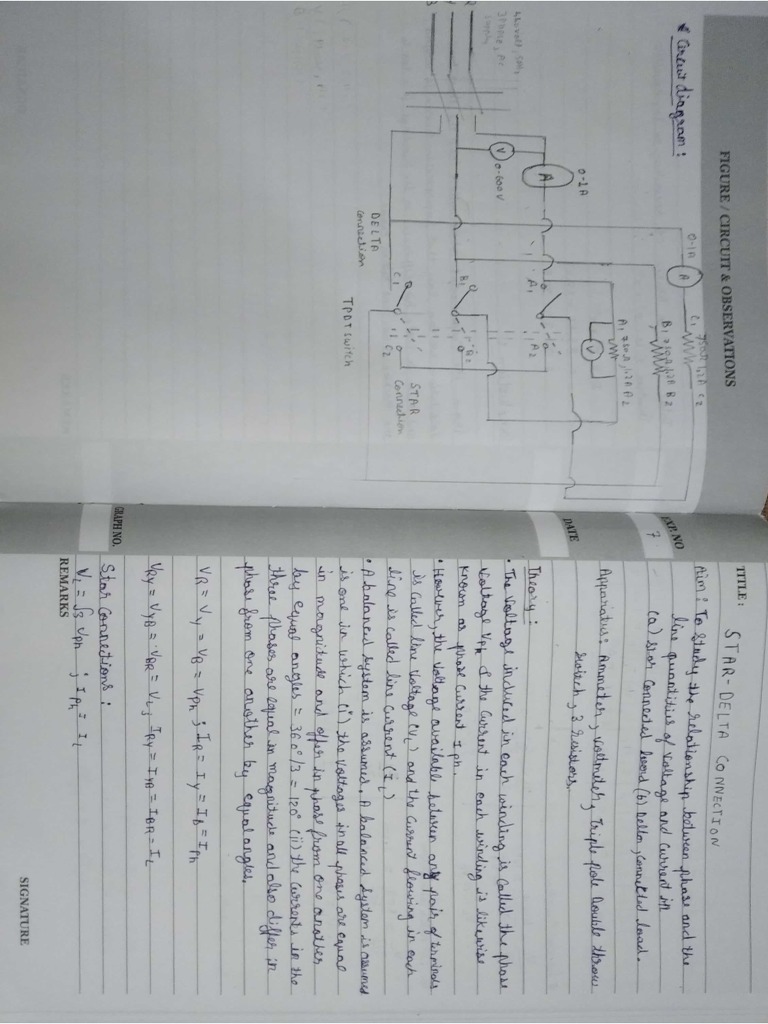 FIGURE / CIRCUIT & OBSERVATIONS
* Circuit diagram :
440 volt, 50Hz,
3 Phase, AC
supply
R
Y
B
0-1A
A
V
0-600V
0-1A
A
C1 750Ω 1.2A C2
B1 750Ω 1.2A B2
A1 750Ω, 1.2A A2
V
A1
A2
B1
B2
C1
C2
DELTA
connection
STAR
Connection
TPDT switch
EXP. NO
7
DATE
GRAPH NO.
TITLE : STAR-DELTA CONNECTION
Aim : To study the relationship between phase and the
line quantities of voltage and current in
(a) star connected load (b) Delta connected load.
Apparatus : Ammeter, voltmeter, Triple Pole Double throw
switch, 3 resistors.
Theory :
• The voltage induced in each winding is called the phase
voltage Vph & the current in each winding is likewise
known as phase current Iph.
• However, the voltage available between any pair of terminals
is called line voltage (VL) and the current flowing in each
line is called line current (IL)
• A balanced system is assumed. A balanced system is assumed
is one in which (i) the voltages in all phases are equal
in magnitude and offer in phase from one another
by equal angles = 360°/3 = 120° (ii) the currents in the
three phases are equal in magnitude and also differ in
phase from one another by equal angles.
VR = VY = VB = Vph ; IR = IY = IB = Iph
VRY = VYB = VBR = VL ; IRY = IYB = IBR = IL
Star Connections :
VL = √3 Vph ; Iph = IL
REMARKS
SIGNATURE